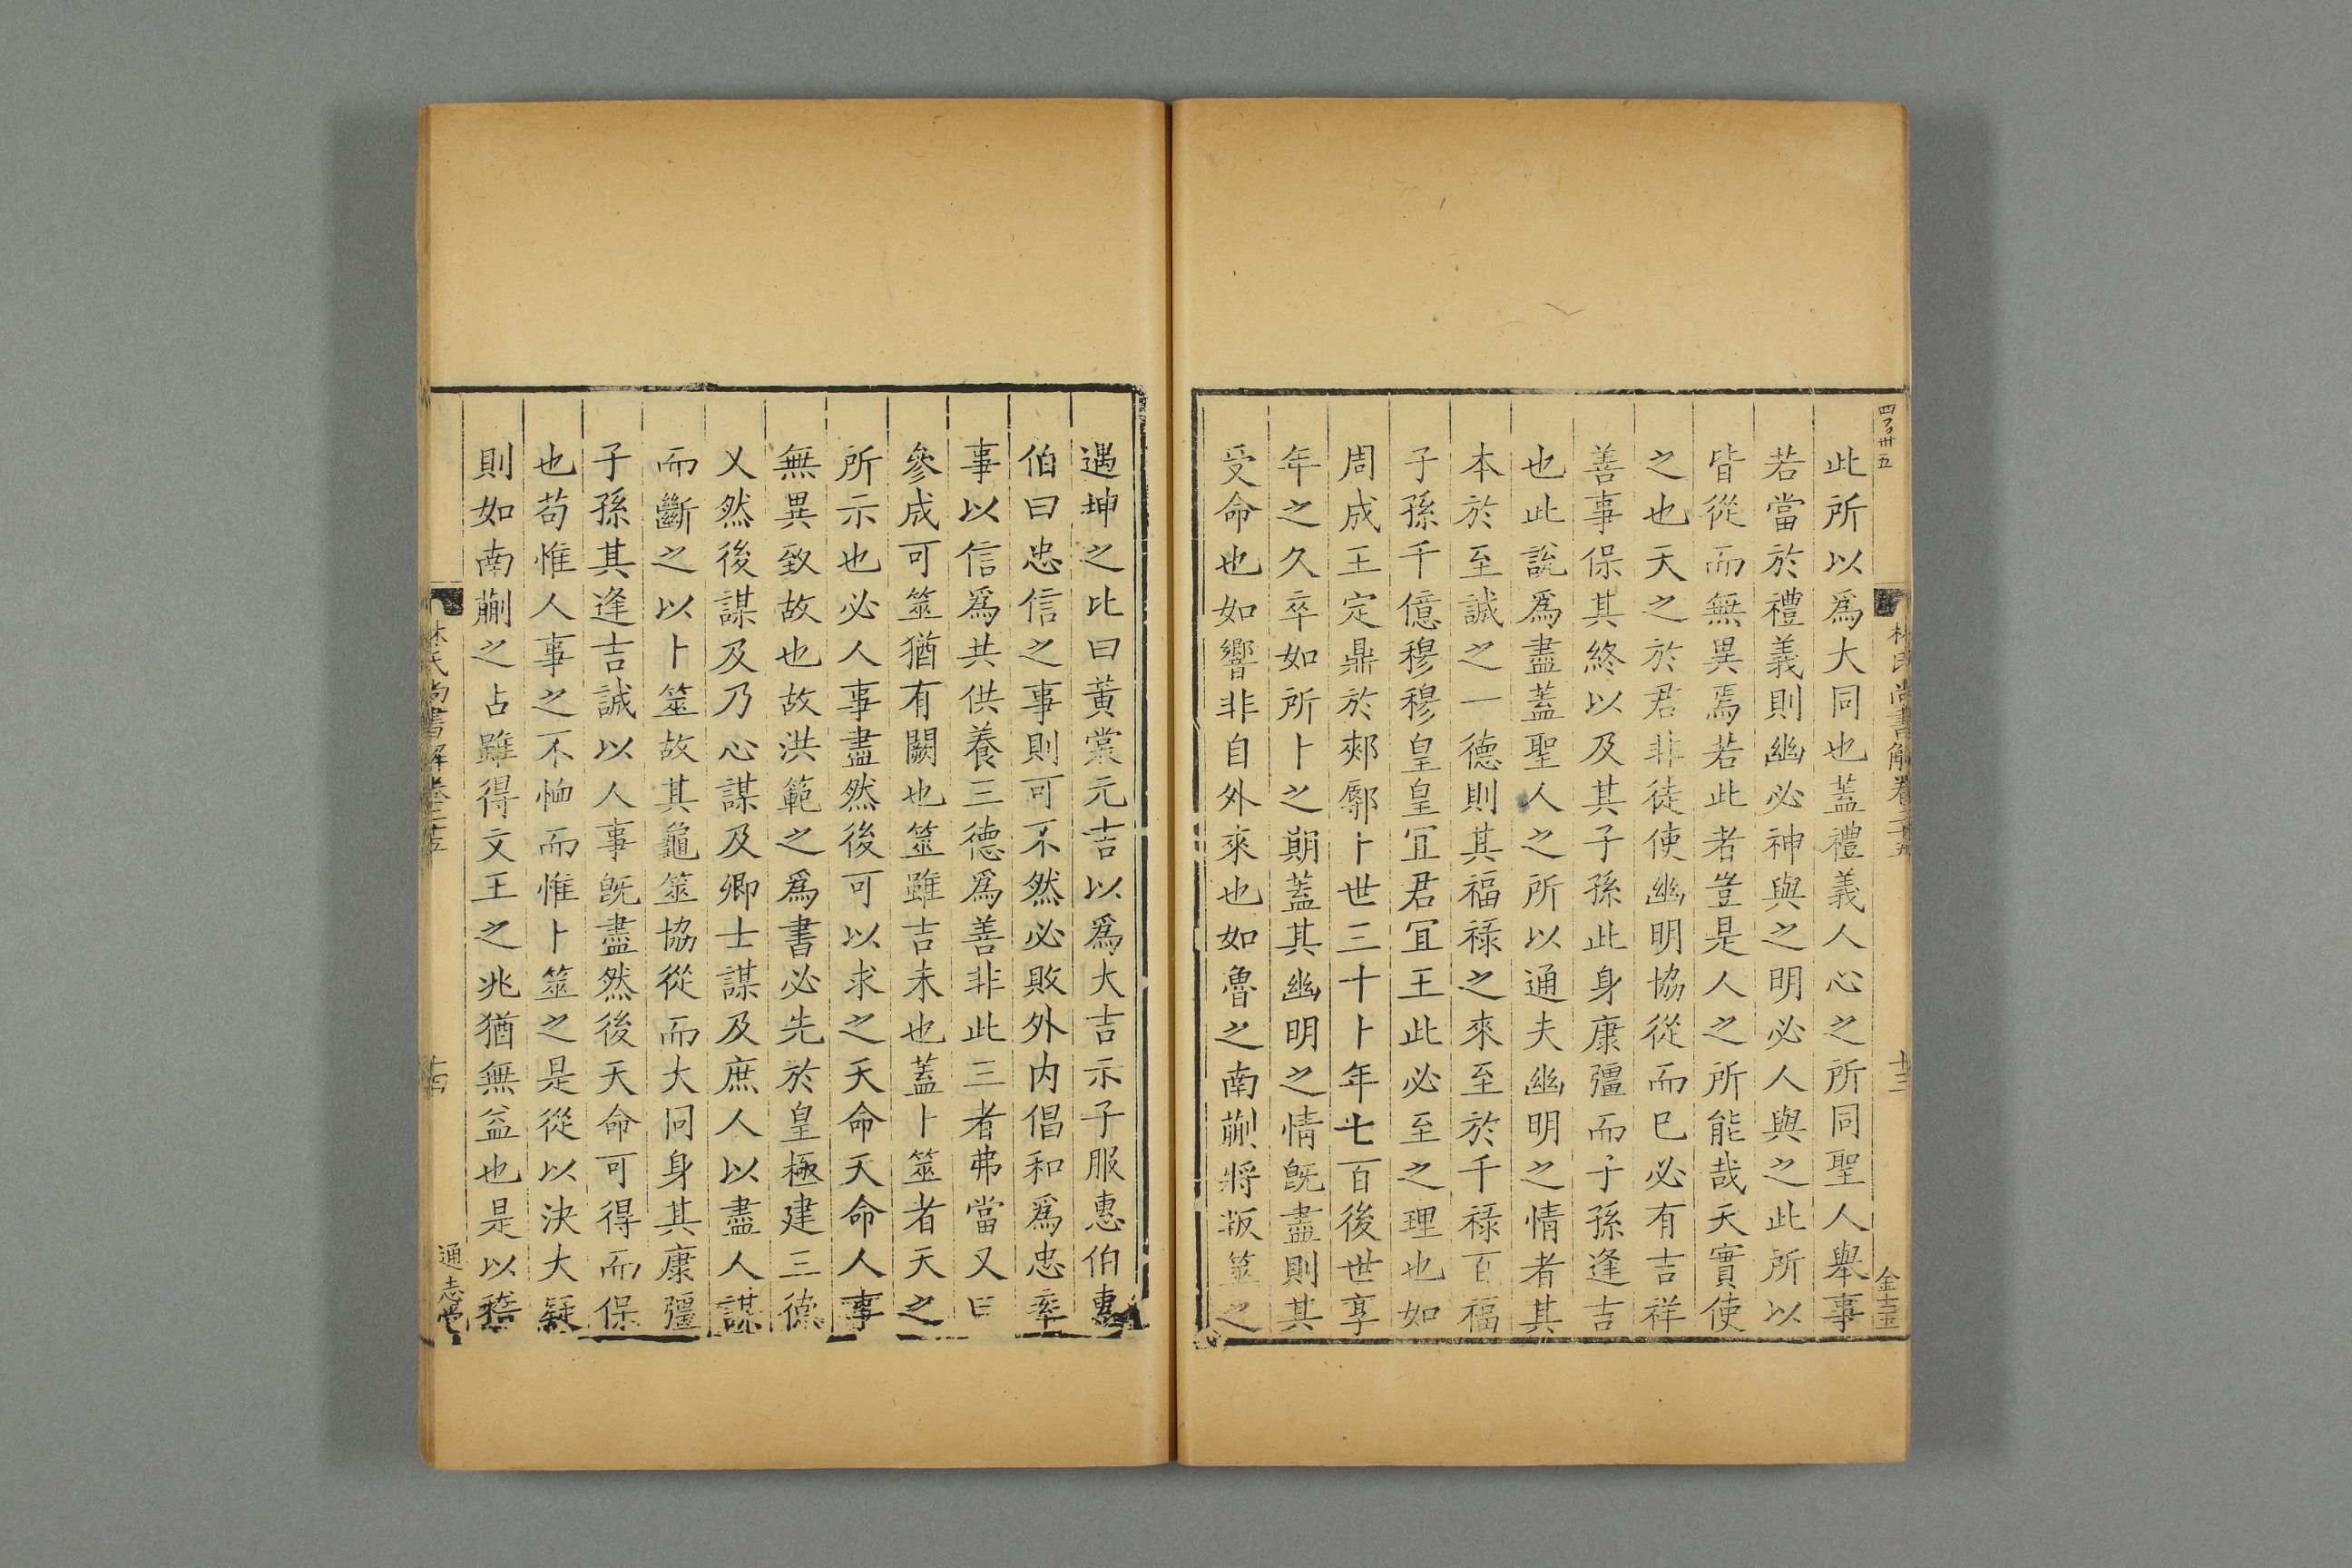 此所以爲大同也蓋禮義人心之所同聖人舉事
若當於禮義則幽必神與之明必人與之此所以
皆從而無異焉若此者豈是人之所能哉天實使
之也天之於君非徒使幽明協從而已必有吉祥
善事保其終以及其子孫此身康彊而子孫逢吉
也此說爲盡蓋聖人之所以通夫幽明之情者其
本於至誠之一德則其福祿之來至於千祿百福
子孫千億穆穆皇皇冝君冝王此必至之理也如
周成王定鼎於郟鄏卜世三十卜年七百後世享
年之久卒如所卜之期蓋其幽明之情旣盡則其
受命也如響非自外來也如魯之南蒯將叛筮之
林氏尚書解卷二十五
十三
金士玉
遇坤之比曰黃裳元吉以爲大吉示子服惠伯惠
伯曰忠信之事則可不然必敗外內倡和爲忠率
事以信爲共供養三德爲善非此三者弗當又曰
參成可筮猶有闕也筮雖吉未也蓋卜筮者天之
所示也必人事盡然後可以求之天命天命人事
無異致故也故洪範之爲書必先於皇極建三德
乂然後謀及乃心謀及卿士謀及庶人以盡人謀
而斷之以卜筮故其龜筮協從而大同身其康彊
子孫其逢吉誠以人事旣盡然後天命可得而保
也苟惟人事之不恤而惟卜筮之是從以決大疑
則如南蒯之占雖得文王之兆猶無益也是以稽
林氏尚書解卷二十五
十四
通志堂